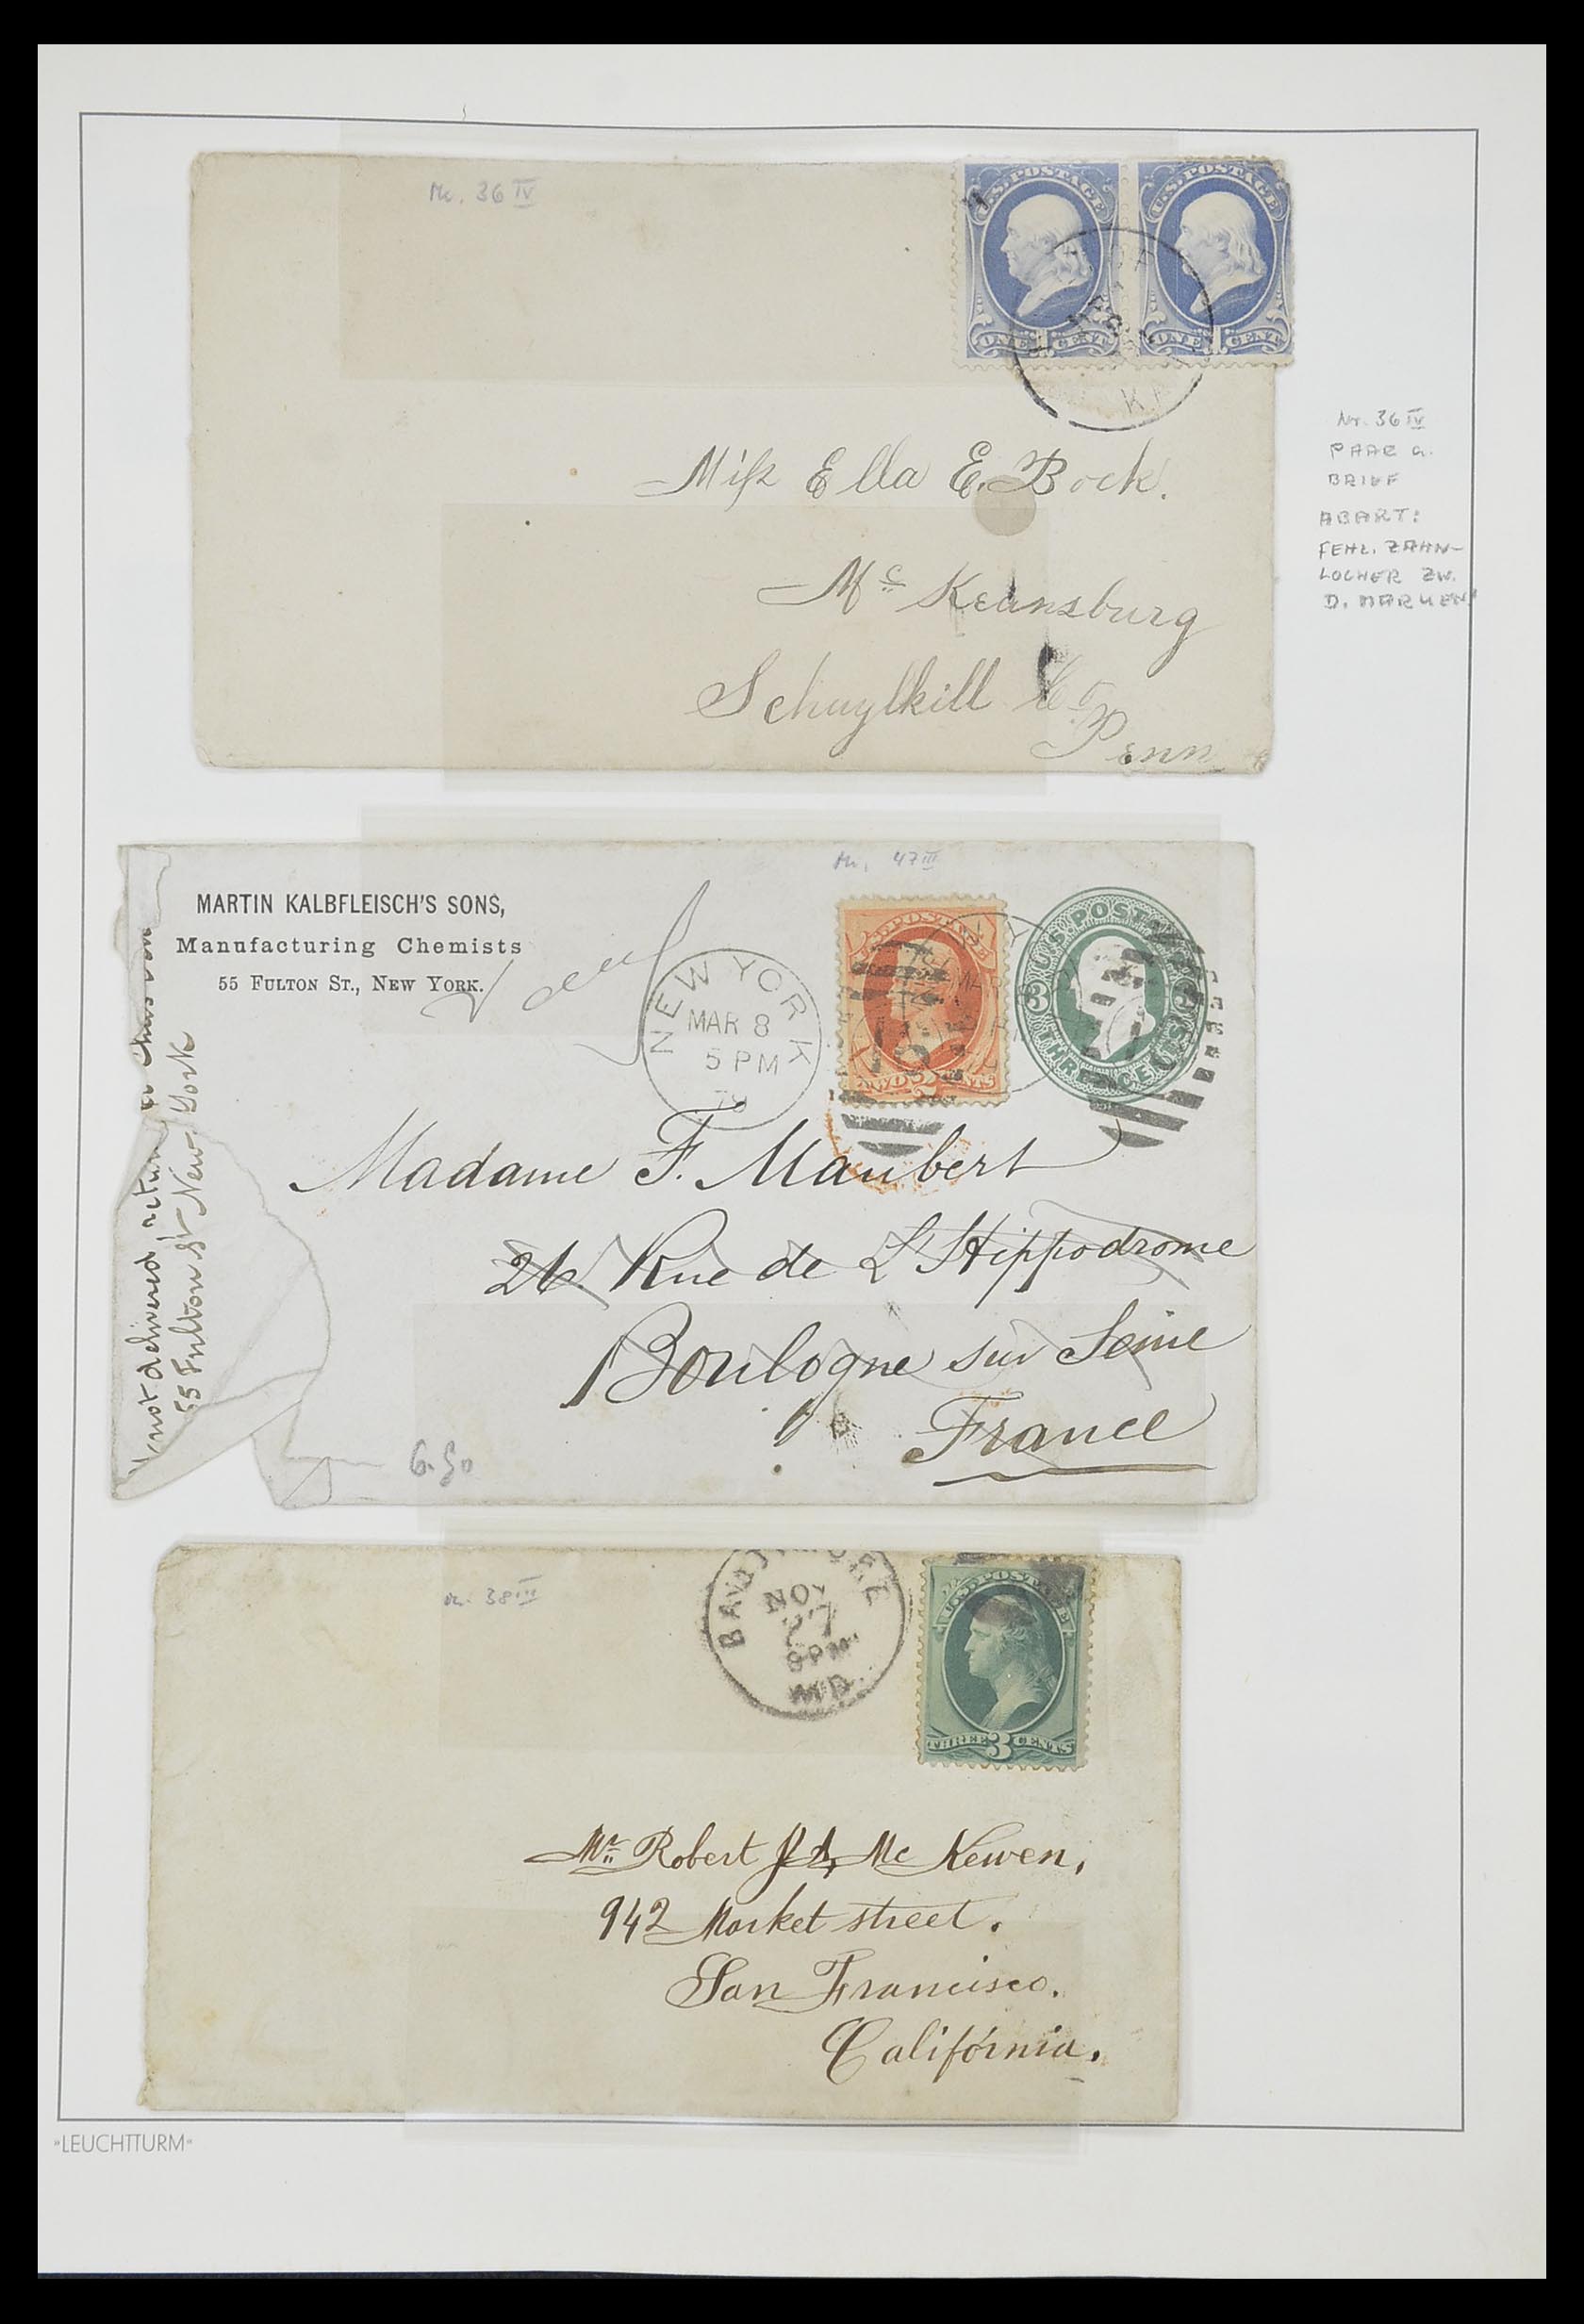 Nr. 36 IV
U.S. POSTAGE
ONE 1 CENT
U.S. POSTAGE
ONE 1 CENT
Miss Ella E. Bock.
Mc Keansburg
Schuylkill Co
Penn
Nr. 36 IV
PAAR a.
BRIEF
ABART:
FEHL. ZÄHN-
LÖCHER ZW.
D. MARKEN!
Nr. 47 III
MARTIN KALBFLEISCH'S SONS,
Manufacturing Chemists
55 FULTON ST., NEW YORK.
NEW YORK
MAR 8
5 PM
79
U.S. POSTAGE
TWO 2 CENTS
U.S. POSTAGE
3
THREE CENTS
not delivered, return
55 Fulton St New York
Madame F. Maubert
26 Rue de L'Hippodrome
Boulogne sur Seine
France
6.50
Nr. 38 III
BALTIMORE
NOV
27
8 PM
MD.
U.S. POSTAGE
THREE 3 CENTS
Mr. Robert Mc Kewen,
942 Market street.
San Francisco.
California.
»LEUCHTTURM«